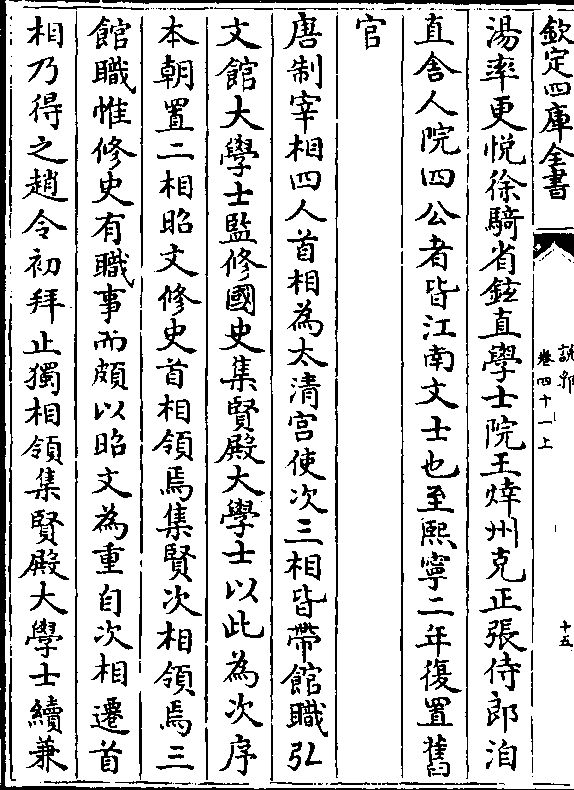 欽定四庫全書
說郛
卷四十一上
十五
湯率更悅徐騎省鉉直學士院王㷆州克正張侍郎洎
直舍人院四公者皆江南文士也至熙寧二年復置舊
官
唐制宰相四人首相為太清宮使次三相皆帶館職弘
文館大學士監修國史集賢殿大學士以此為次序
本朝置二相昭文修史首相領焉集賢次相領焉三
館職惟修史有職事而頗以昭文為重自次相遷首
相乃得之趙令初拜止獨相領集賢殿大學士續兼